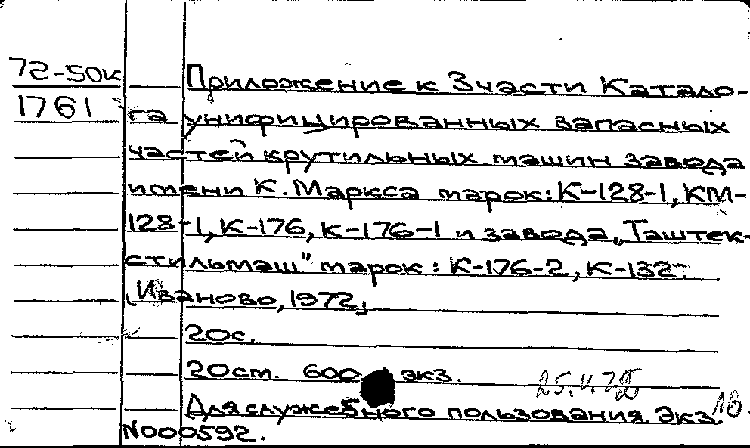 72-50к
1761
Приложение к 3 части Катало-
га унифицированных запасных
частей крутильных машин завода
имени К. Маркса марок: К-128-1, КМ-
128-1, К-176, К-176-1 и завода „Таштек-
стильмаш" марок: К-176-2, К-132.
Иваново, 1972,
20с.
20см. 600 экз.
Для служебного пользования. Экз.
N000592.